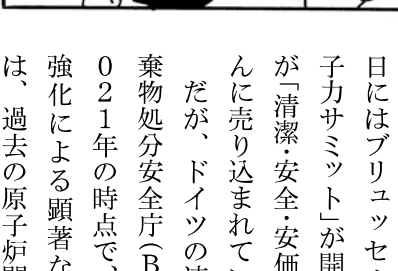 日にはブリュッセ
子力サミット」が開
が「清潔・安全・安価
んに売り込まれて
だが、ドイツの
棄物処分安全庁（B
021年の時点で、
強化による顕著な
は、過去の原子炉